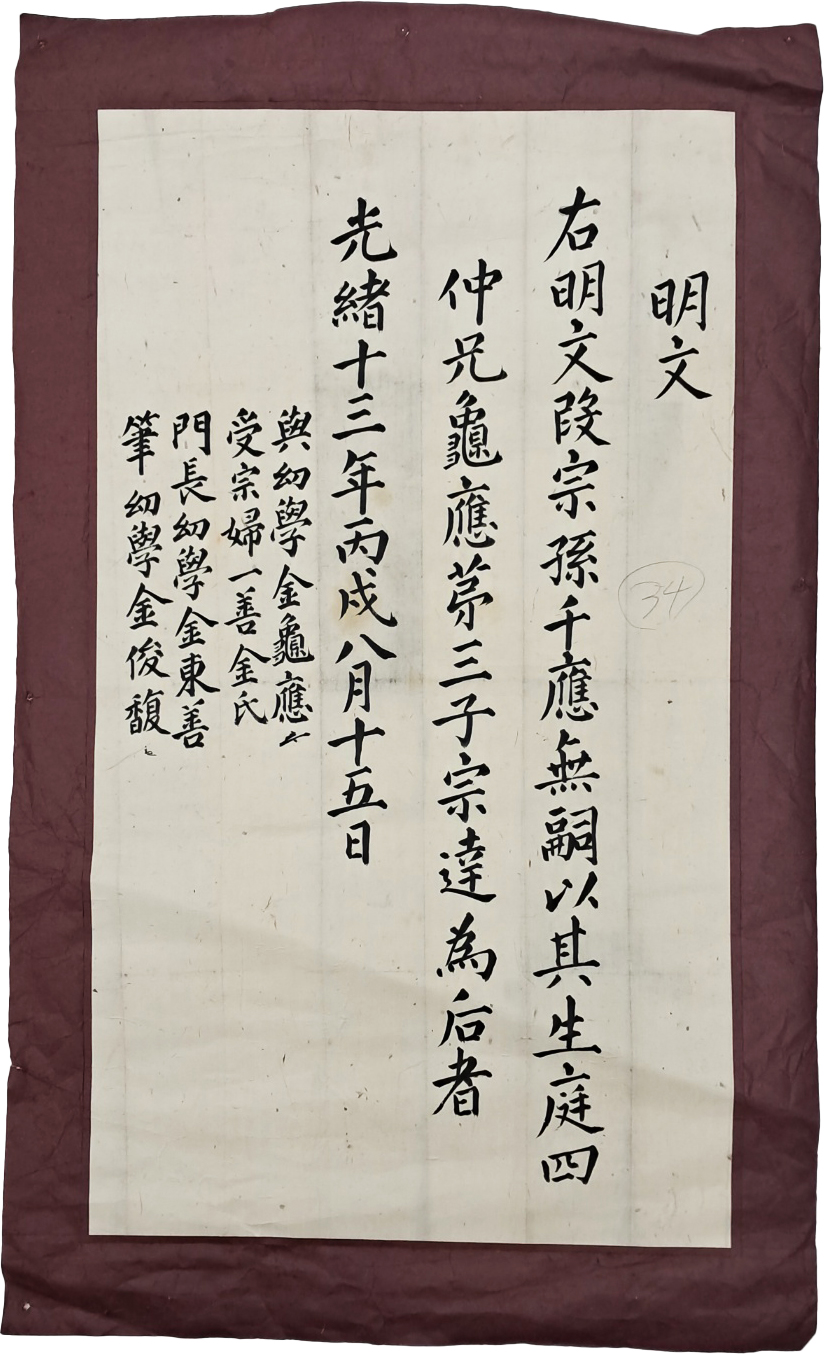 明文
右明文段宗孫千應無嗣以其生庭四
仲兄龜應苐三子宗達為后者
光緒十三年丙戌八月十五日
與幼學金龜應
受宗婦一善金氏
門長幼學金東善
筆幼學金俊馥
34